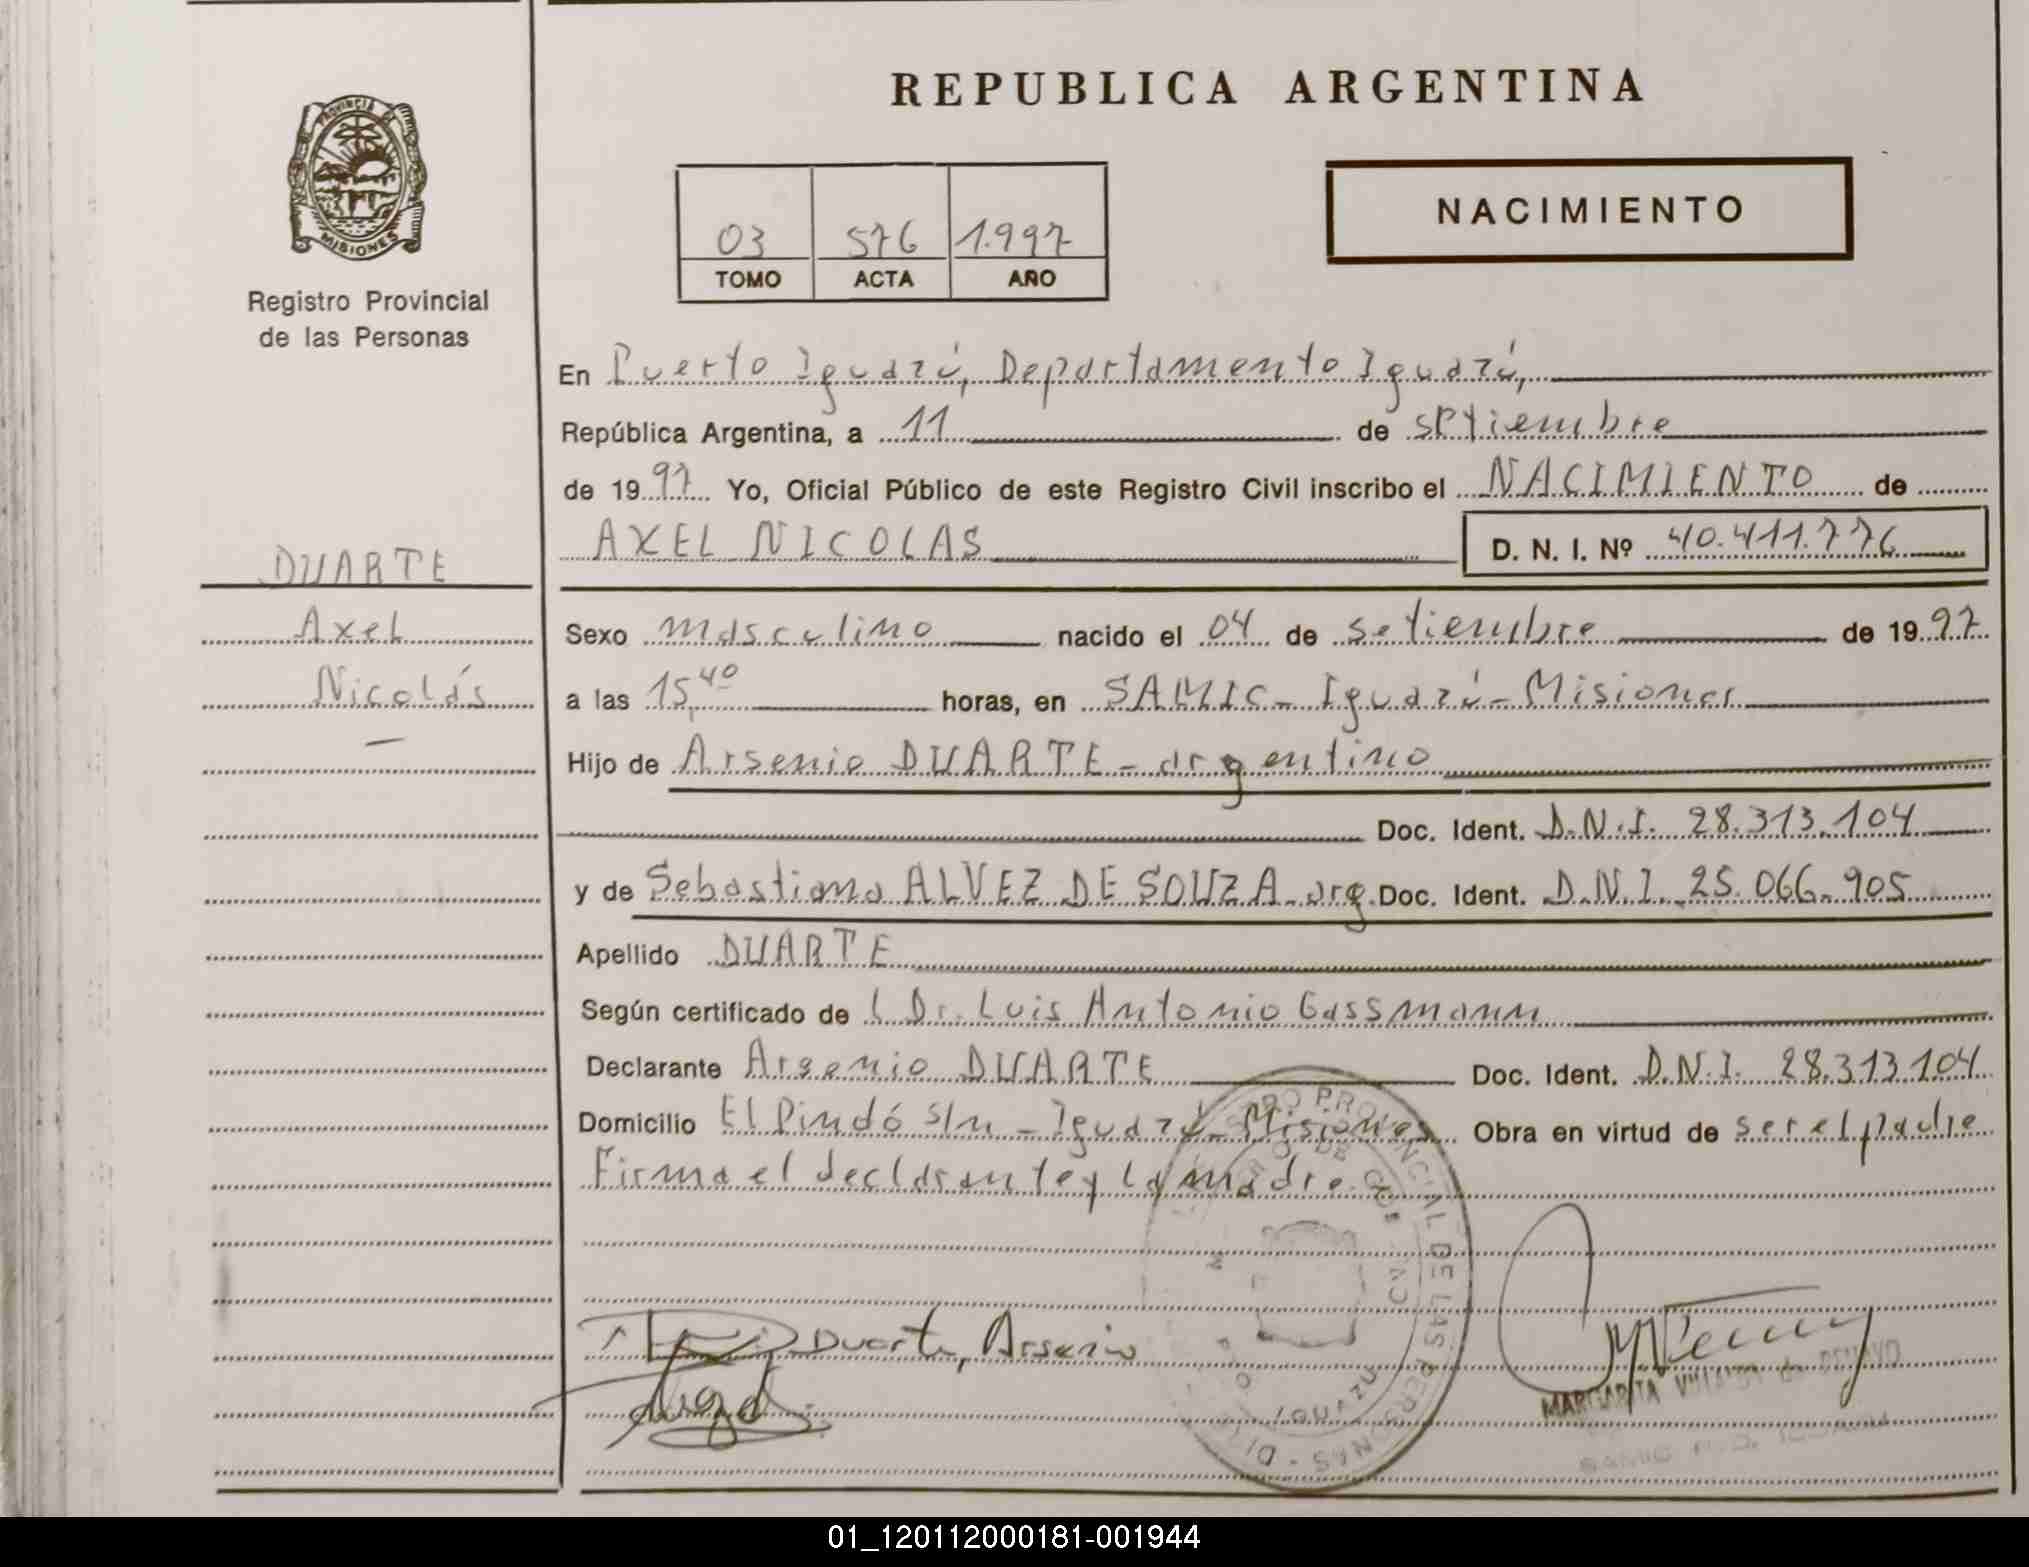 REPUBLICA ARGENTINA
PROVINCIA DE
MISIONES
Registro Provincial
de las Personas
NACIMIENTO
03 576 1.997
TOMO ACTA AÑO
En Puerto Iguazú, Departamento Iguazú,
República Argentina, a 11 de septiembre
de 1997 Yo, Oficial Público de este Registro Civil inscribo el NACIMIENTO de
AXEL NICOLAS D. N. I. Nº 40.411.776
DUARTE
Axel
Nicolás
Sexo masculino nacido el 04 de setiembre de 1997
a las 15,40 horas, en SAMIC - Iguazú - Misiones
Hijo de Arsenio DUARTE - argentino
Doc. Ident. D.N.I. 28.313.104
y de Sebastiana ALVEZ DE SOUZA - arg. Doc. Ident. D.N.I. 25.066.905
Apellido DUARTE
Según certificado de l Dr. Luis Antonio Gassmann
Declarante Arsenio DUARTE Doc. Ident. D.N.I. 28.313.104
Domicilio El Pindó s/n - Iguazú - Misiones Obra en virtud de ser el padre
Firma el declarante y la madre.
REGISTRO PROVINCIAL DE LAS PERSONAS
IGUAZU
Duarte, Arsenio
MARGARITA
01_120112000181-001944